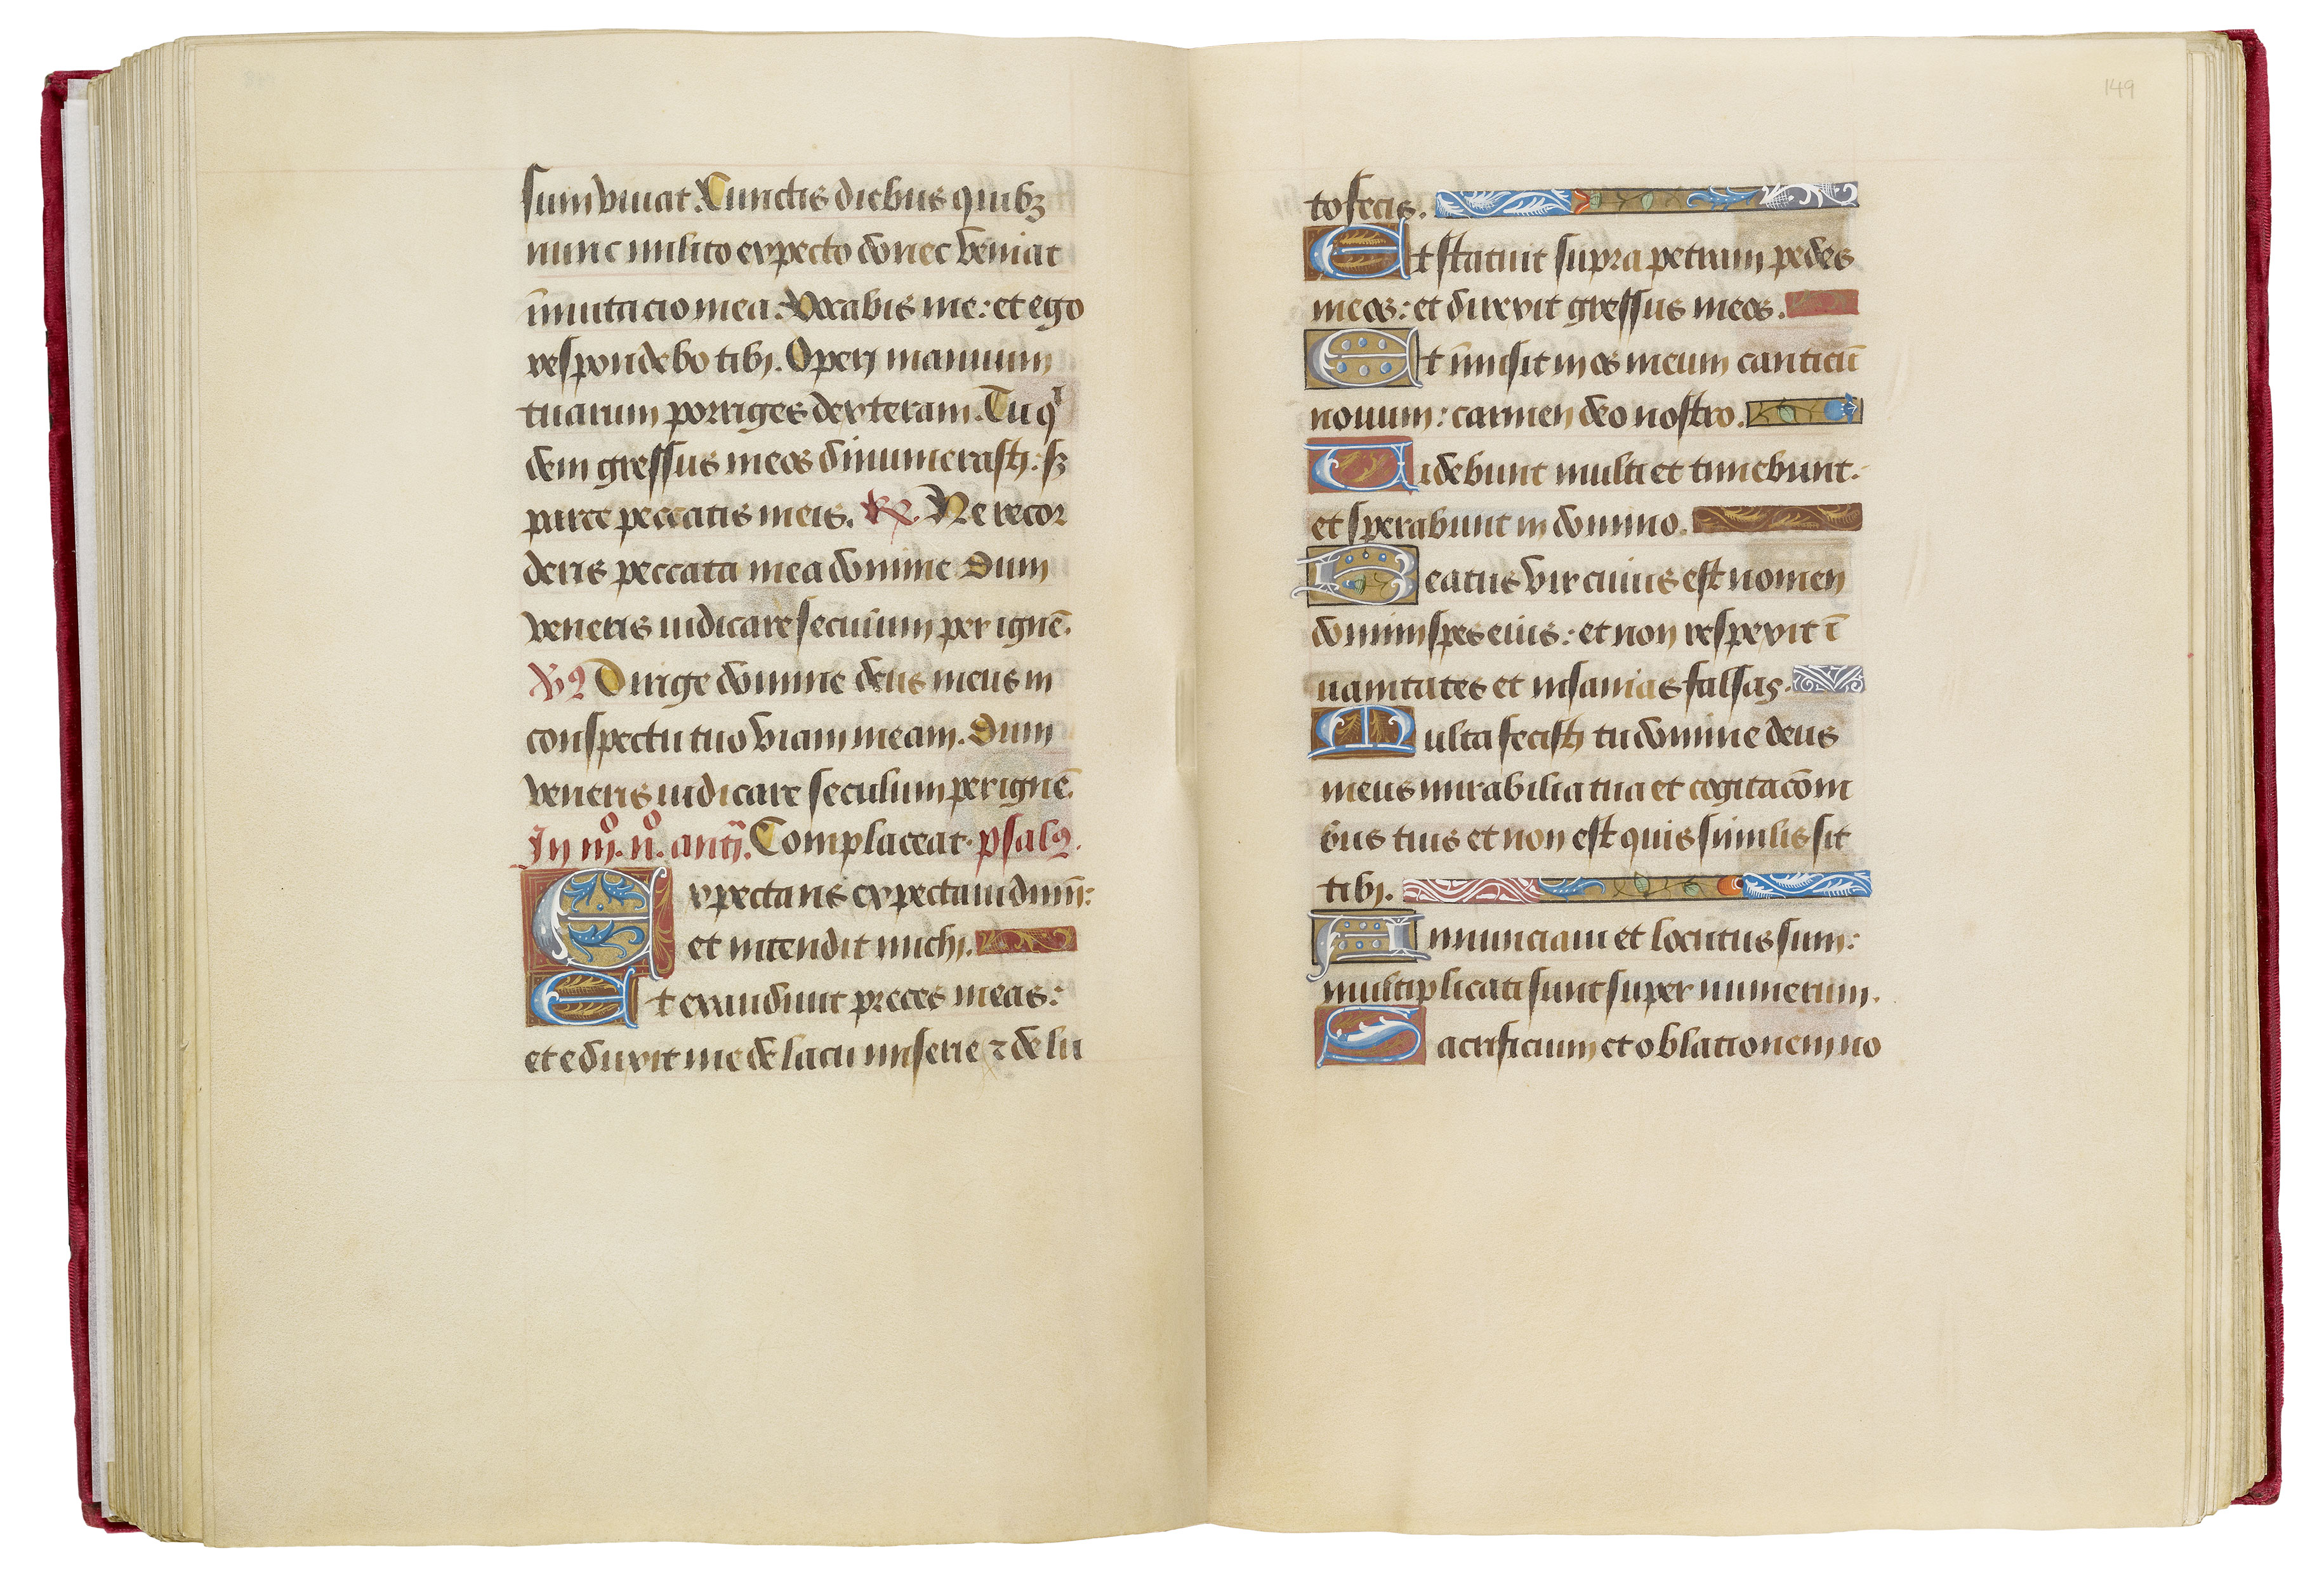 sum viuat. Cunctis diebus quibꝫ
nunc milito expecto donec veniat
īmutacio mea. Vocabis me: et ego
respondebo tibi. Operi manuum
tuarum porriges dexteram. Tu qⁱ
dem gressus meos dinumerasti: sꝫ
parce peccatis meis. ℞. Ne recor
deris peccata mea domine Dum
veneris iudicare seculum per ignē.
Dirige domine deus meus in
conspectu tuo viam meam. Dum
veneris iudicare seculum per ignē.
In iiiº. nº. anti. Complaceat. psalꝯ.
Expectans expectaui dnm̄:
et intendit michi.
Et exaudiuit preces meas:
et eduxit me de lacu miserie ⁊ de lu
149
to fecis.
Et statuit supra petram pedes
meos: et direxit gressus meos.
Et īmisit in os meum canticū
nouum: carmen deo nostro.
Uidebunt multi et timebunt:
et sperabunt in domino.
Beatus vir cuius est nomen
domini spes eius: et non respexit ī
uanitates et insanias falsas.
Multa fecisti tu domine deus
meus mirabilia tua et cogitacōni
bus tuis et non est quis similis sit
tibi.
Annunciaui et locutus sum:
multiplicati sunt super numerum.
Sacrificium et oblationem no